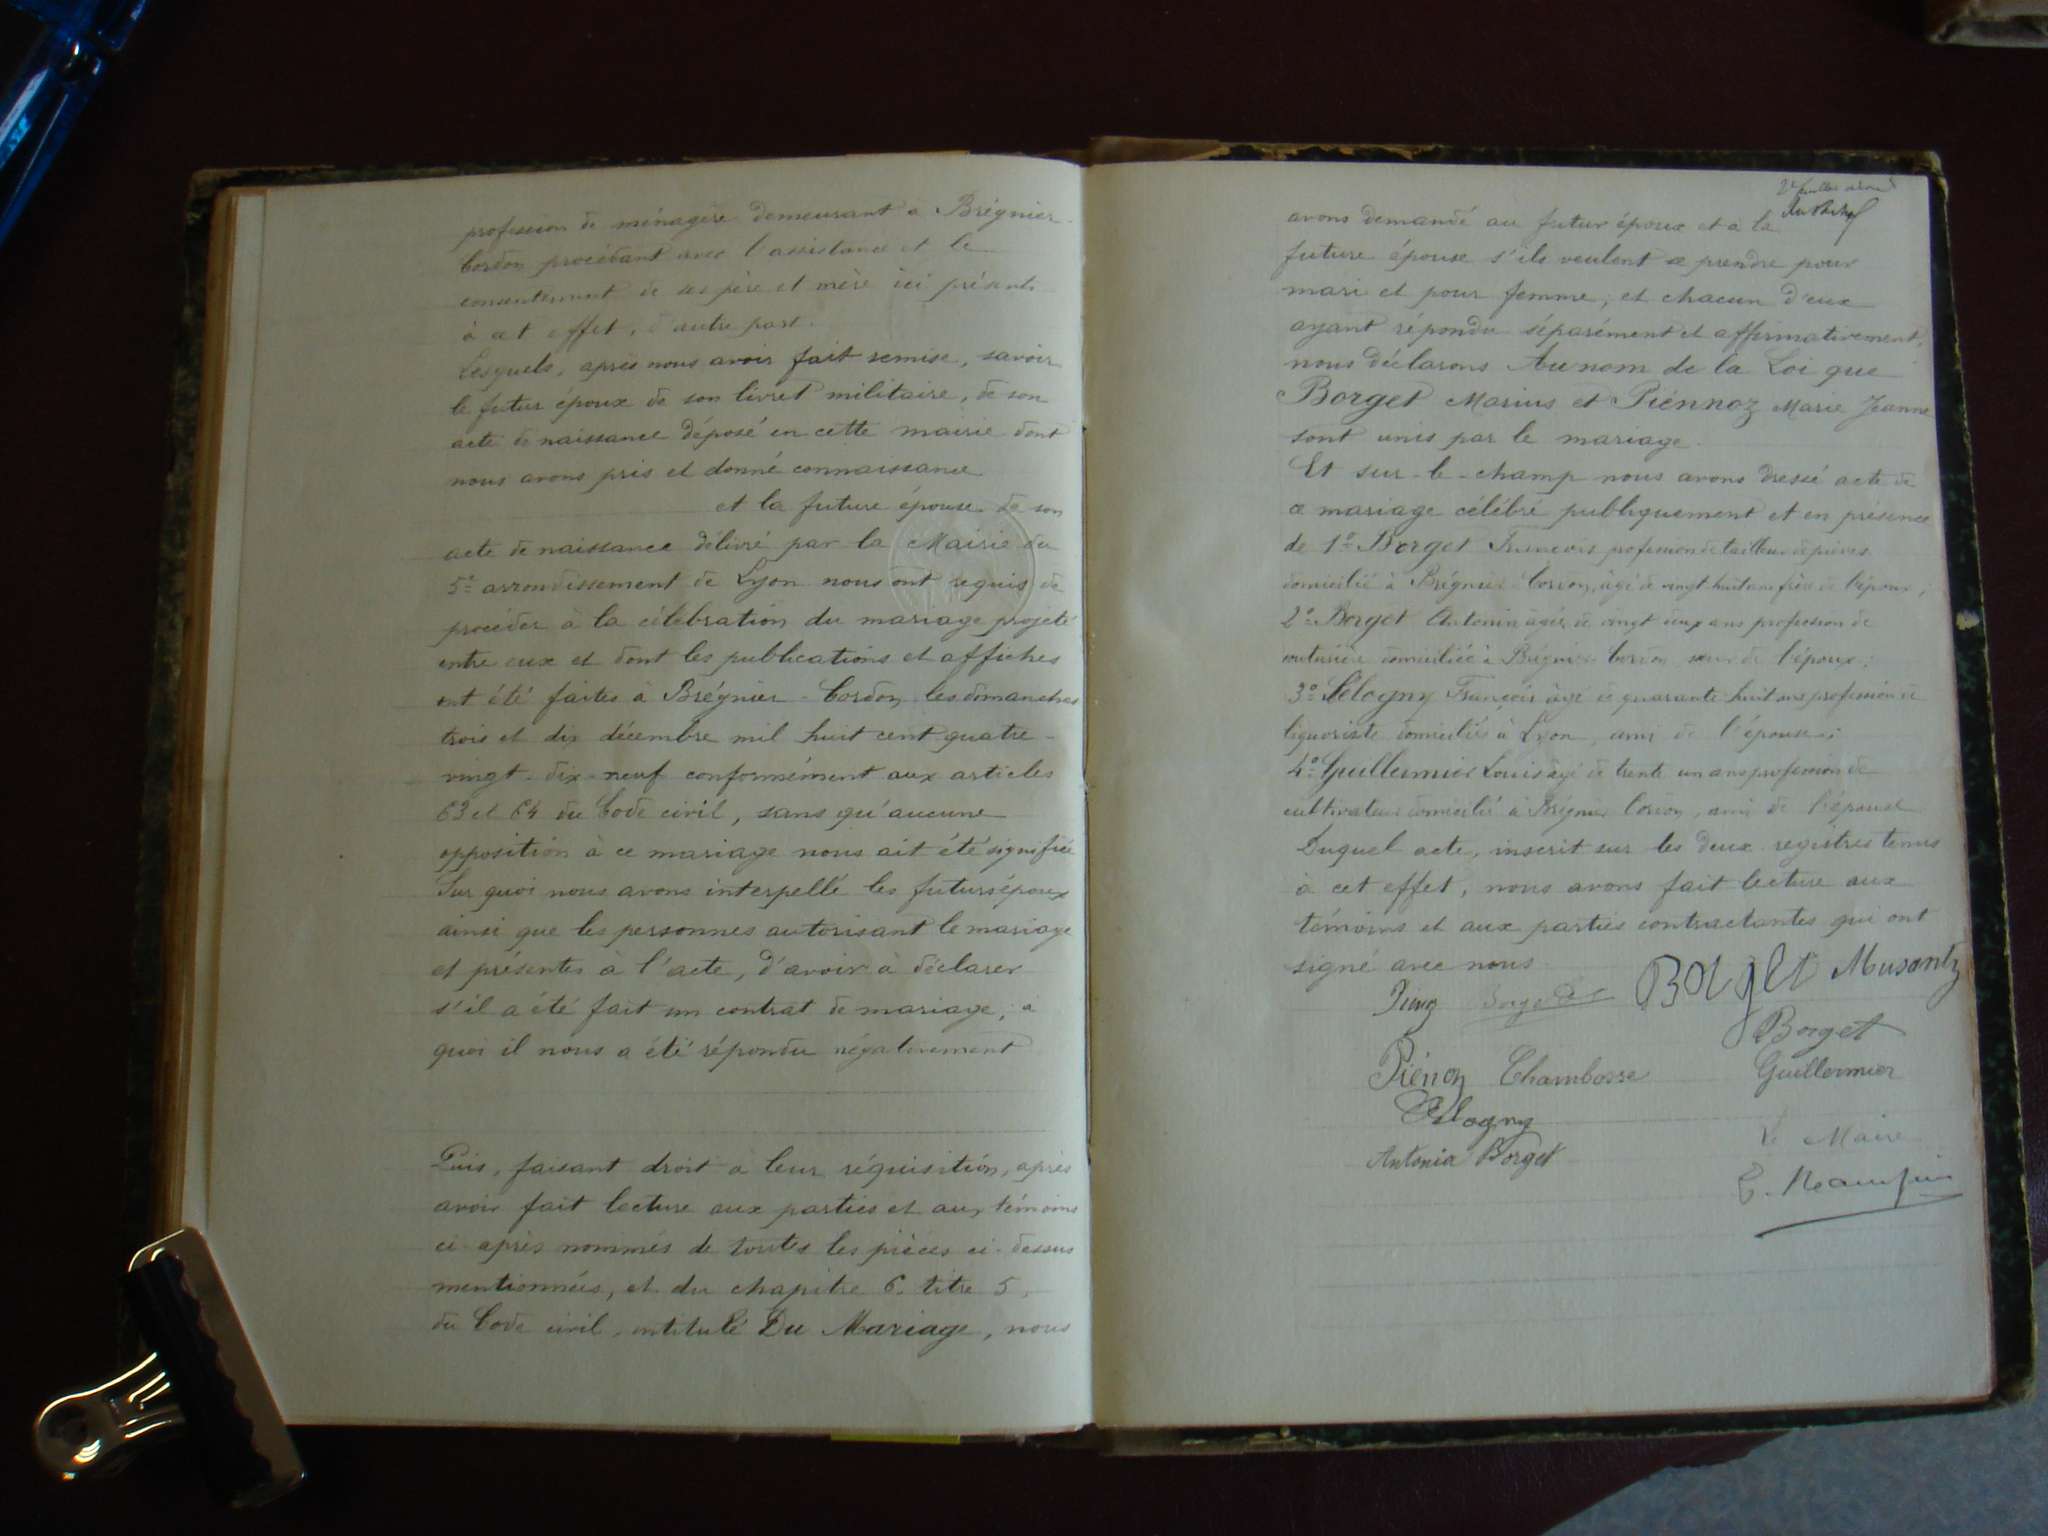 profession de ménagère demeurant à Brégnier-
Cordon procédant avec l'assistance et le
consentement de ses père et mère ici présents
à cet effet, d'autre part.
Lesquels, après nous avoir fait remise, savoir
le futur époux de son livret militaire, de son
acte de naissance déposé en cette mairie dont
nous avons pris et donné connaissance
et la future épouse de son
acte de naissance délivré par la Mairie du
5e arrondissement de Lyon nous ont requis de
procéder à la célébration du mariage projeté
entre eux et dont les publications et affiches
ont été faites à Brégnier-Cordon les dimanches
trois et dix décembre mil huit cent quatre-
vingt-dix-neuf conformément aux articles
63 et 64 du Code civil, sans qu'aucune
opposition à ce mariage nous ait été signifiée
Sur quoi nous avons interpellé les futurs époux
ainsi que les personnes autorisant le mariage
et présentes à l'acte, d'avoir à déclarer
s'il a été fait un contrat de mariage, à
quoi il nous a été répondu négativement
Puis, faisant droit à leur réquisition, après
avoir fait lecture aux parties et aux témoins
ci-après nommés de toutes les pièces ci-dessus
mentionnées, et du chapitre 6, titre 5,
du Code civil, intitulé Du Mariage, nous
avons demandé au futur époux et à la
future épouse s'ils veulent se prendre pour
mari et pour femme, et chacun d'eux
ayant répondu séparément et affirmativement,
nous déclarons Au nom de la Loi que
Borget Marius et Piénnoz Marie Jeanne
sont unis par le mariage.
Et sur-le-champ nous avons dressé acte de
ce mariage célébré publiquement et en présence
de 1o Borget François profession de tailleur de pierres
domicilié à Brégnier-Cordon, âgé de vingt huit ans frère de l'époux;
2o Borget Antonia âgée de vingt deux ans profession de
couturière domiciliée à Brégnier-Cordon, sœur de l'époux;
3o Célogny François âgé de quarante huit ans profession de
liquoriste domicilié à Lyon, ami de l'épouse;
4o Guillermier Louis âgé de trente un ans profession de
cultivateur domicilié à Brégnier Cordon, ami de l'époux
Duquel acte, inscrit sur les deux registres tenus
à cet effet, nous avons fait lecture aux
témoins et aux parties contractantes qui ont
signé avec nous.
Borget
Borget
Chambosse
Guillermier
Célogny
Antonia Borget
Le Maire